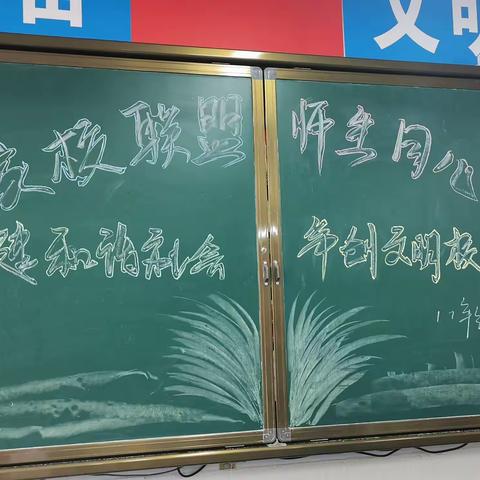 文明
家校联盟 师生同心
建和谐社会 争创文明校